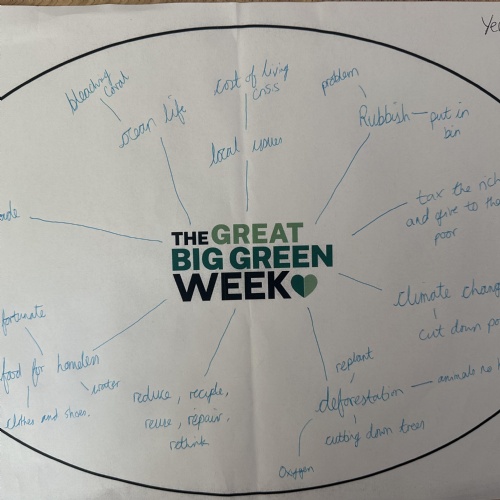 bleaching
coral
ocean life
cost of living
local issues
problem
Rubbish
put in
bin
tax the rich
and give to the
poor
THE GREAT
BIG GREEN
WEEK
climate
cut down
food for homeless
water
clothes and shoes.
reduce, recycle,
reuse, repair,
rethink
replant
deforestation
animals no
cutting down trees
Oxygen